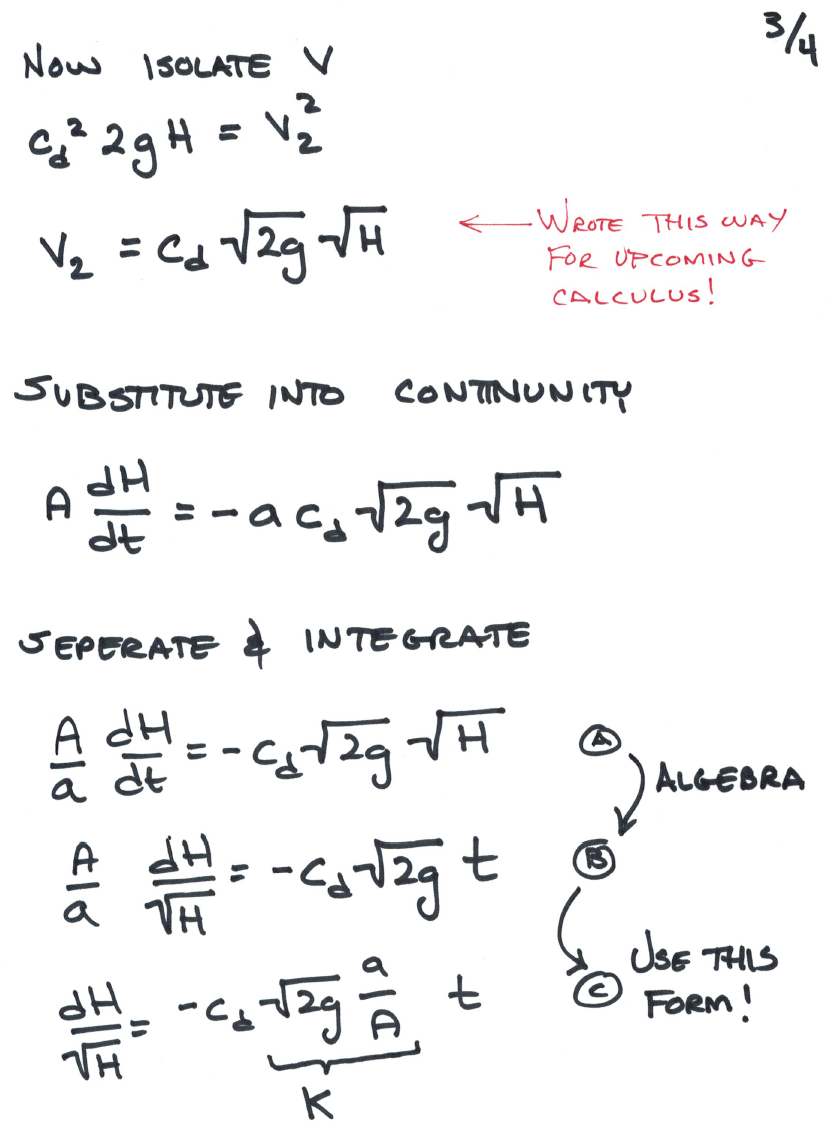 3/4
NOW ISOLATE V
C_d² 2gH = V₂²
V₂ = C_d √2g √H
← WROTE THIS WAY
FOR UPCOMING
CALCULUS!
SUBSTITUTE INTO CONTINUNITY
A dH/dt = -a C_d √2g √H
SEPERATE & INTEGRATE
A/a dH/dt = -C_d √2g √H
A
ALGEBRA
A/a dH/√H = -C_d √2g t
B
dH/√H = -C_d √2g a/A t
C
USE THIS
FORM!
K